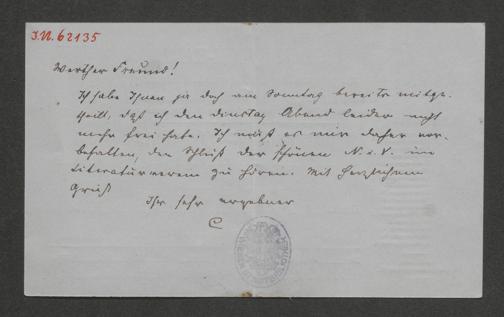 I.N. 62135
Werther Freund!
Ich habe Ihnen ja doch am Sonntag bereits mitge-
theilt, daß ich den Dienstag Abend leider nicht
mehr frei habe. Ich muß es mir daher vor-
behalten, den Schluß der schönen N. v. V. im
Literaturverein zu hören. Mit herzlichem
Gruß
Ihr sehr ergebener
C